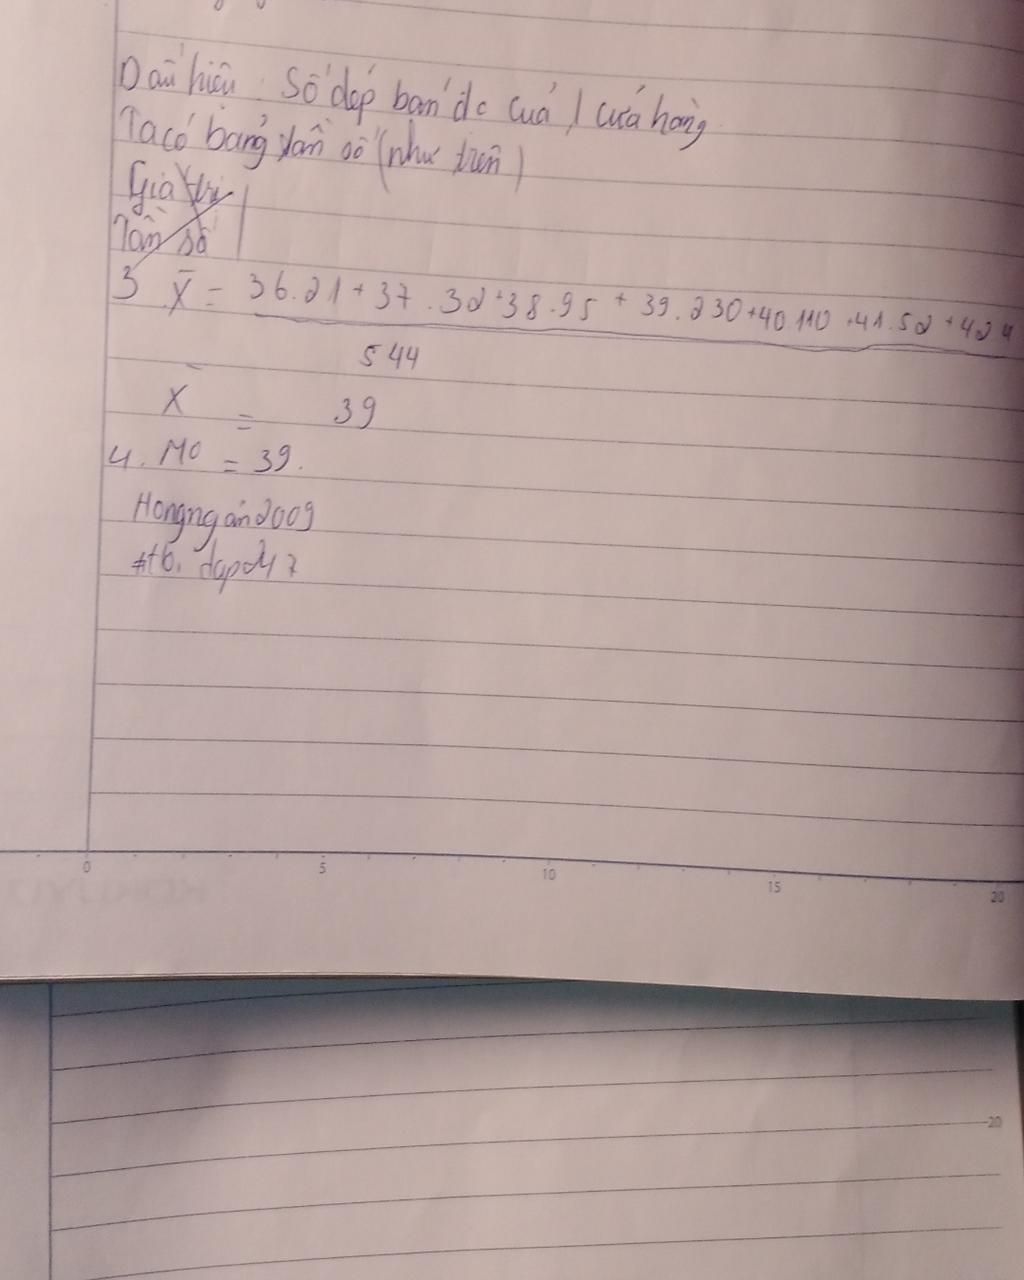 Dấu hiệu: Số dép bán đc của 1 cửa hàng.
Ta có bảng tần số (như trên)
Giá trị
Tần số
3 X̄ = 36.21 + 37.32 + 38.95 + 39.230 + 40.110 + 41.52 + 42 4
544
X̄ = 39
4. M0 = 39.
Hongngan2009
0 5 10 15 20
20